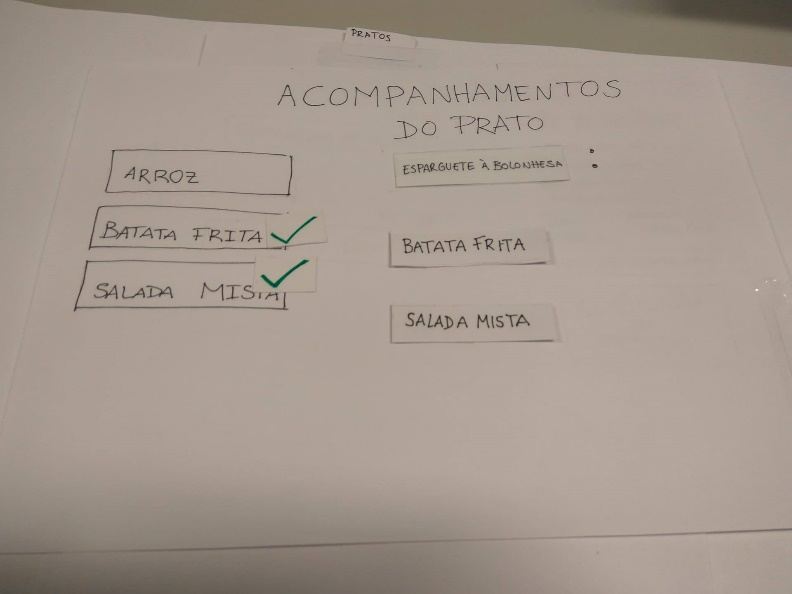 PRATOS
ACOMPANHAMENTOS
DO PRATO
ARROZ
BATATA FRITA
SALADA MISTA
ESPARGUETE À BOLONHESA :
BATATA FRITA
SALADA MISTA